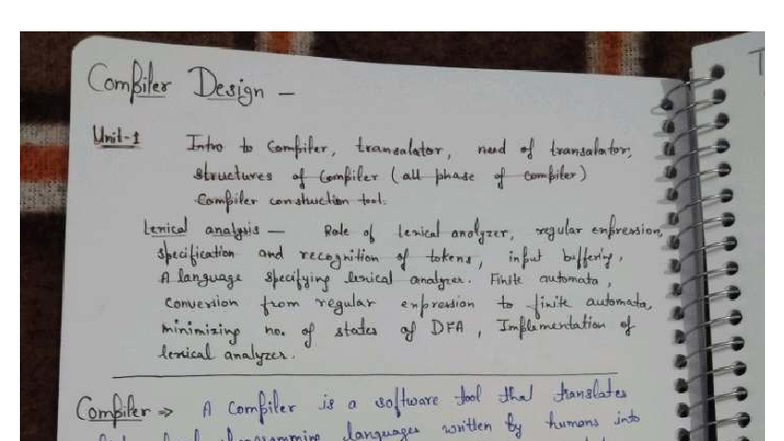 Compiler Design –
Unit-1 Intro to Compiler, translator, need of translator,
structures of Compiler (all phase of compiler)
Compiler construction tool.
Lexical analysis — Role of lexical analyzer, regular expression,
specification and recognition of tokens, input buffering,
A language specifying lexical analyzer. Finite automata,
conversion from regular expression to finite automata,
minimizing no. of states of DFA, Implementation of
lexical analyzer.
Compiler ⇒ A Compiler is a software tool that translates
programming languages written by humans into